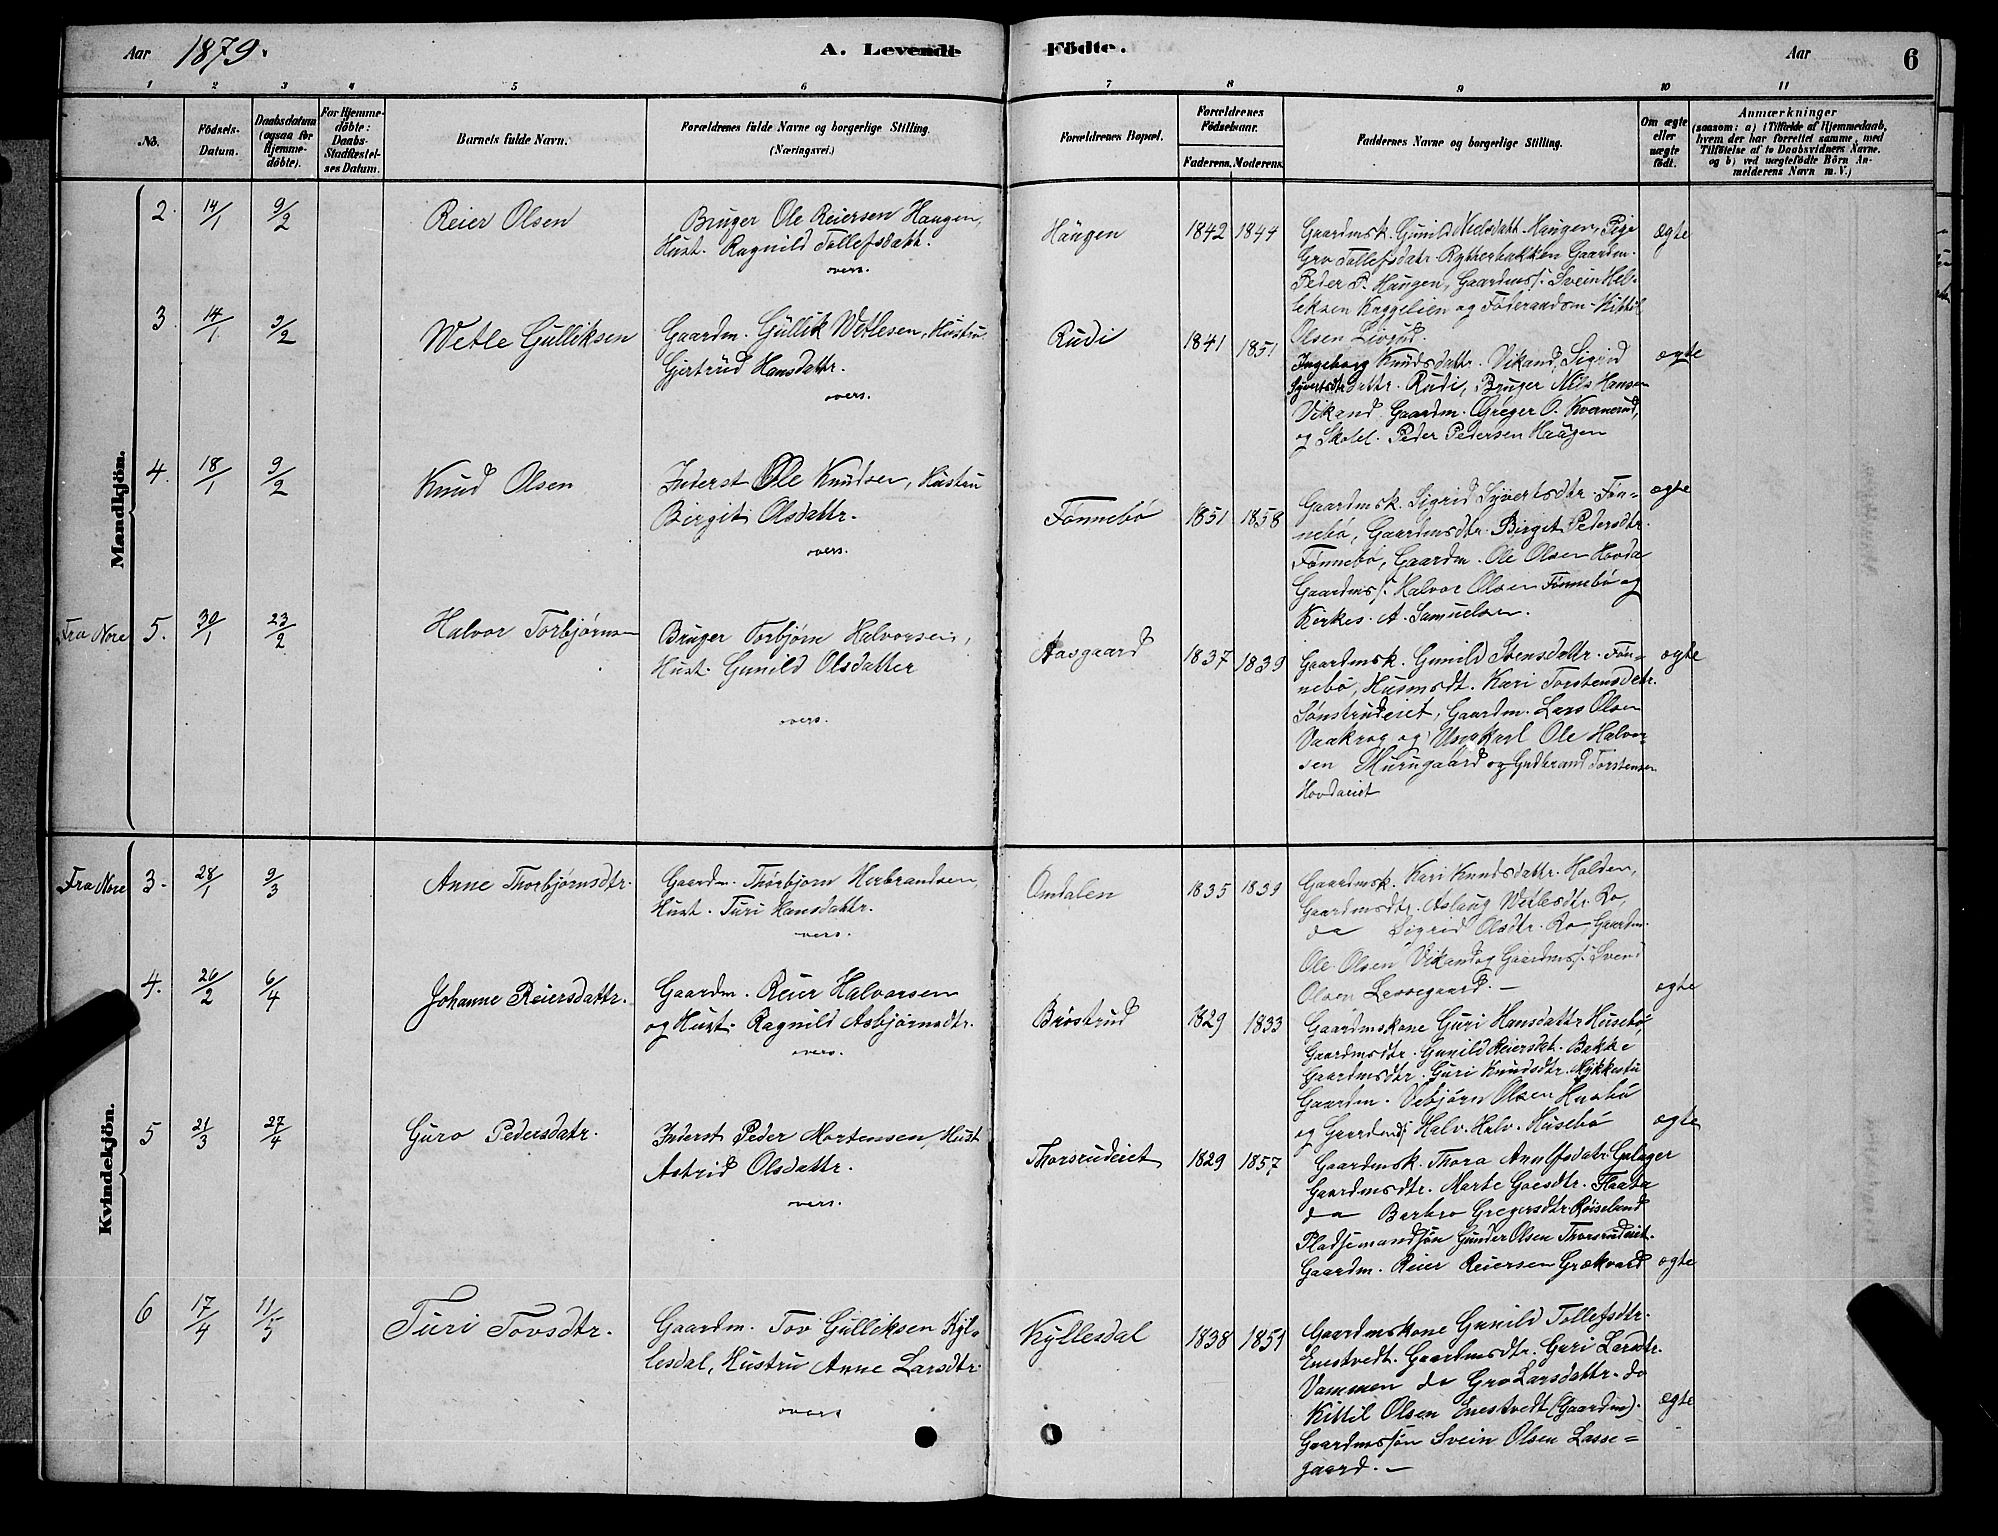 Aar 1879. A. Levende Födte. Aar 6
1 2 3 4 5 6 7 8 9 10 11
No.
Födsels-
Datum.
Daabsdatum
(ogsaa for
Hjemme-
döbte).
For Hjemme-
döbte:
Daabs-
Stadfæstel-
ses Datum.
Barnets fulde Navn.
Forældrenes fulde Navne og borgerlige Stilling.
(Næringsvei.)
Forældrenes Bopæl.
Forældrenes
Födselsaar.
Faderens. Moderens.
Faddernes Navne og borgerlige Stilling.
Om ægte
eller
uægte
födt.
Anmærkninger
(saasom: a) i Tilfælde af Hjemmedaab,
hvem der har forrettet samme, med
Tilföielse af to Daabsvidners Navne.
og b) ved uægtefödte Börn An-
melderens Navn m. V.)
Mandkjön.
2. 14/1 9/2 Reier Olsen
Bruger Ole Reiersen Haugen,
Hust. Ragnild Tollefsdatt.
overs.
Haugen 1842 1844
Gaardmsk. Gunild Nelsdatt. Haugen, Pige
Gro Tollefsdatr. Rytterbakken Gaardm.
Peder P. Haugen, Gaardmss. Svein Hel-
leksen Knggelien og Føderaadsm. Kittil
Olsen Livrud.
ægte
3. 14/1 9/2 Vetle Gulliksen
Gaardm. Gullik Vetlesen, Hustru
Gjertrud Hansdattr.
overs.
Rudi 1841 1851
Ingeborg Knudsdattr. Vikand, Sigrid
Syvertsdtrdattr. Rudi, Bruger Nils Hansen
Vikand Gaardm. Greger O. Kvernerud,
og Skolel. Peder Pedersen Haugen
ægte
4. 18/1 9/2 Knud Olsen
Inderst Ole Knudsen, Hustru
Birgit Olsdattr.
overs.
Fønnebø 1851 1858
Gaardmsk. Sigrid Syvertsdtr. Føn-
nebø, Gaardmsdtr. Birget Pedersdtr.
Fønnebø, Gaardm. Ole Olsen Hovda
Gaardmss. Halvor Olsen Fønnebø og
Kerkes. A. Samuelsen.
ægte
Fra Nore 5. 30/1 23/2 Halvor Torbjørnsen
Bruger Torbjørn Halvorsen,
Hust. Gunild Olsdatter
overs.
Aasgaard 1837 1839
Gaardmsk. Gunild Stensdattr. Føn-
nebø, Husmsdt. Kari Torstensdatr.
Sønstrudeiet, Gaardm. Lars Olsen
Vaakrag og Ungkarl Ole Halvor-
sen Murugaard og Gudbrand Torstensen
Hovdaeiet
ægte
Kvindekjön.
Fra Nore 3. 28/1 9/3 Anne Thorbjørnsdtr.
Gaardm. Thorbjørn Herbrandsen,
Hust. Turi Hansdattr.
overs.
Omdalen 1835 1839
Gaardmsk. Kari Knudsdattr. Halden,
Gaardmsdtr. Aslaug Vetlesdtr. Ro,
do Sigrid Olsdtr. Ro Gaardm.
Ole Olsen Vikand og Gaardmss. Svend
Olsen Lessegaard. —
ægte
4. 26/2 6/4 Johanne Reiersdattr.
Gaardm. Reier Halvorsen
og Hust. Ragnild Asbjørnsdtr.
overs.
Brøstrud 1829 1833
Gaardmskone Guri Hansdattr Husebø,
Gaardmsdtr. Gunild Reiersdt. Bakke
Gaardmsdtr. Guri Knudsdtr. Mykkestu
Gaardm. Vebjørn Olsen Husebø
og Gaardmss. Halv. Halv. Husebø
ægte
5 21/3 27/4 Guro Pedersdatr.
Inderst Peder Mortensen, Hust
Astrid Olsdattr.
overs.
Thorsrudeiet 1829 1857
Gaardmsk. Thora Anulfsdatr. Gulager
Gaardmsdtr. Marte Goesdtr. Flaata
do Barbro Gregersdtr. Røiseland
Pladsemandsøn Gunder Olsen Thorsrudeiet.
Gaardm. Reier Reiersen Grækvard
ægte
6 17/4 11/5 Turi Tovsdtr.
Gaardm. Tov Gulliksen Kyl-
lesdal, Hustru Anne Larsdtr.
overs
Kyllesdal 1838 1851
Gaardmskone Gunild Tollefsdtr.
Enestvedt. Gaardmsdtr. Guri Larsdtr.
Vammen do Gro Larsdattr. do
Kittil Olsen Enestvedt (Gaardm).
Gaardmssøn Svein Olsen Lasse-
gaard. —
ægte